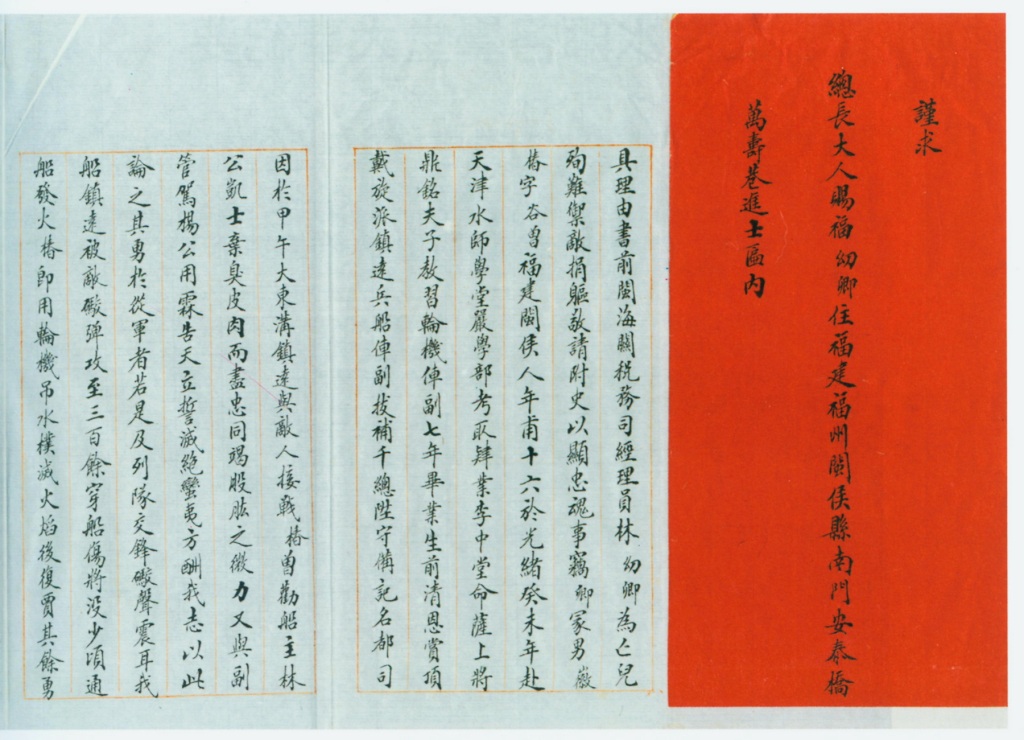 謹求
總長大人賜福幼卿住福建福州閩侯縣南門安泰橋
萬壽巷進士區內
具理由書前閩海關稅務司經理員林幼卿為亡兒
殉難禦敵捐軀敬請附史以顯忠魂事竊卿冢男徽
椿字谷曾福建閩侯人年甫十六於光緒癸未年赴
天津水師學堂嚴學部考取肄業李中堂命薩上將
鼎銘夫子教習輪機俥副七年畢業生前清恩賞頂
戴旋派鎮遠兵船俥副拔補千總陞守備記名都司
因於甲午大東溝鎮遠與敵人接戰椿曾勸船主林
公凱士棄臭皮肉而盡忠同竭股肱之微力又與副
管駕楊公用霖告天立誓滅絕蠻夷方酬我志以此
論之其勇於從軍者若是及列隊交鋒礮聲震耳我
船鎮遠被敵礮彈攻至三百餘穿船傷將沒少頃通
船發火椿即用輪機吊水樸滅火焰後復賈其餘勇